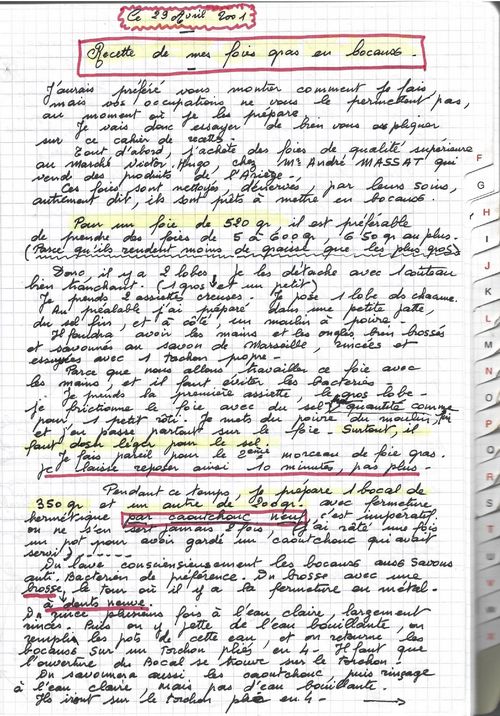 Ce 29 Avril 2001
Recette de mes foies gras en bocaux.
J'aurais préféré vous montrer comment je fais,
mais vos occupations ne vous le permettent pas,
au moment où je les prépare.
Je vais donc essayer de bien vous expliquer
sur ce cahier de recettes.
Tout d'abord, j'achète des foies de qualité supérieure
au marché Victor. Hugo, chez Mr André MASSAT qui
vend des produits de l'Ariège.
Ces foies sont nettoyés, dénervés, par leurs soins,
autrement dit, ils sont prêts à mettre en bocaux.
Pour un foie de 520 gr. il est préférable
de prendre des foies de 5 à 600 gr. 650 gr au plus.
(Parce qu'ils rendent moins de graisse que les plus gros)
Donc, il y a 2 lobes, je les détache avec 1 couteau
bien tranchant. (1 gros et un petit)
Je prends 2 assiettes creuses. Je pose 1 lobe ds chacune.
Au préalable j'ai préparé dans une petite jatte,
du sel fin, et à côté, un moulin à poivre.
Il faudra avoir les mains et les ongles bien brossés
et savonnés au savon de Marseille, rincées et
essuyées avec 1 torchon propre.
Parce que nous allons travailler ce foie avec
les mains, et il faut éviter les bactéries
Je prends la première assiette, le gros lobe.
je frictionne le foie avec du sel, quantité comme
pour 1 petit rôti. Je mets du poivre du moulin,
et j'en passe partout sur le foie. Surtout, il
faut doser léger pour le sel.
Je fais pareil pour le 2ème morceau de foie gras.
Je laisse reposer ainsi 10 minutes, pas plus.
Pendant ce temps, Je prépare 1 bocal de
350 gr et un autre de 200 gr. avec fermeture
hermétique par caoutchouc neuf, c'est impératif,
on ne s'en sert jamais 2 fois (j'ai râté une fois
un pot pour avoir gardé un caoutchouc qui avait
servi)
On lave consciencieusement les bocaux aux Savons
anti. Bactérien de préférence. On brosse avec une
brosse le tour où il y a la fermeture en métal.
à dents neuve
On rince plusieurs fois à l'eau claire, largement
rincés. Puis on y jette de l'eau bouillante, on
remplis les pots de cette eau et on retourne les
bocaux sur un torchon pliés en 4. Il faut que
l'ouverture du Bocal se trouve sur le torchon.
On savonnera aussi les caoutchouc, puis rinçage
à l'eau claire, mais pas d'eau bouillante.
Ils iront sur le torchon plié en 4.
F
G
H
I
J
K
L
M
N
O
P
Q
R
S
T
U
V
W
X
Y
Z